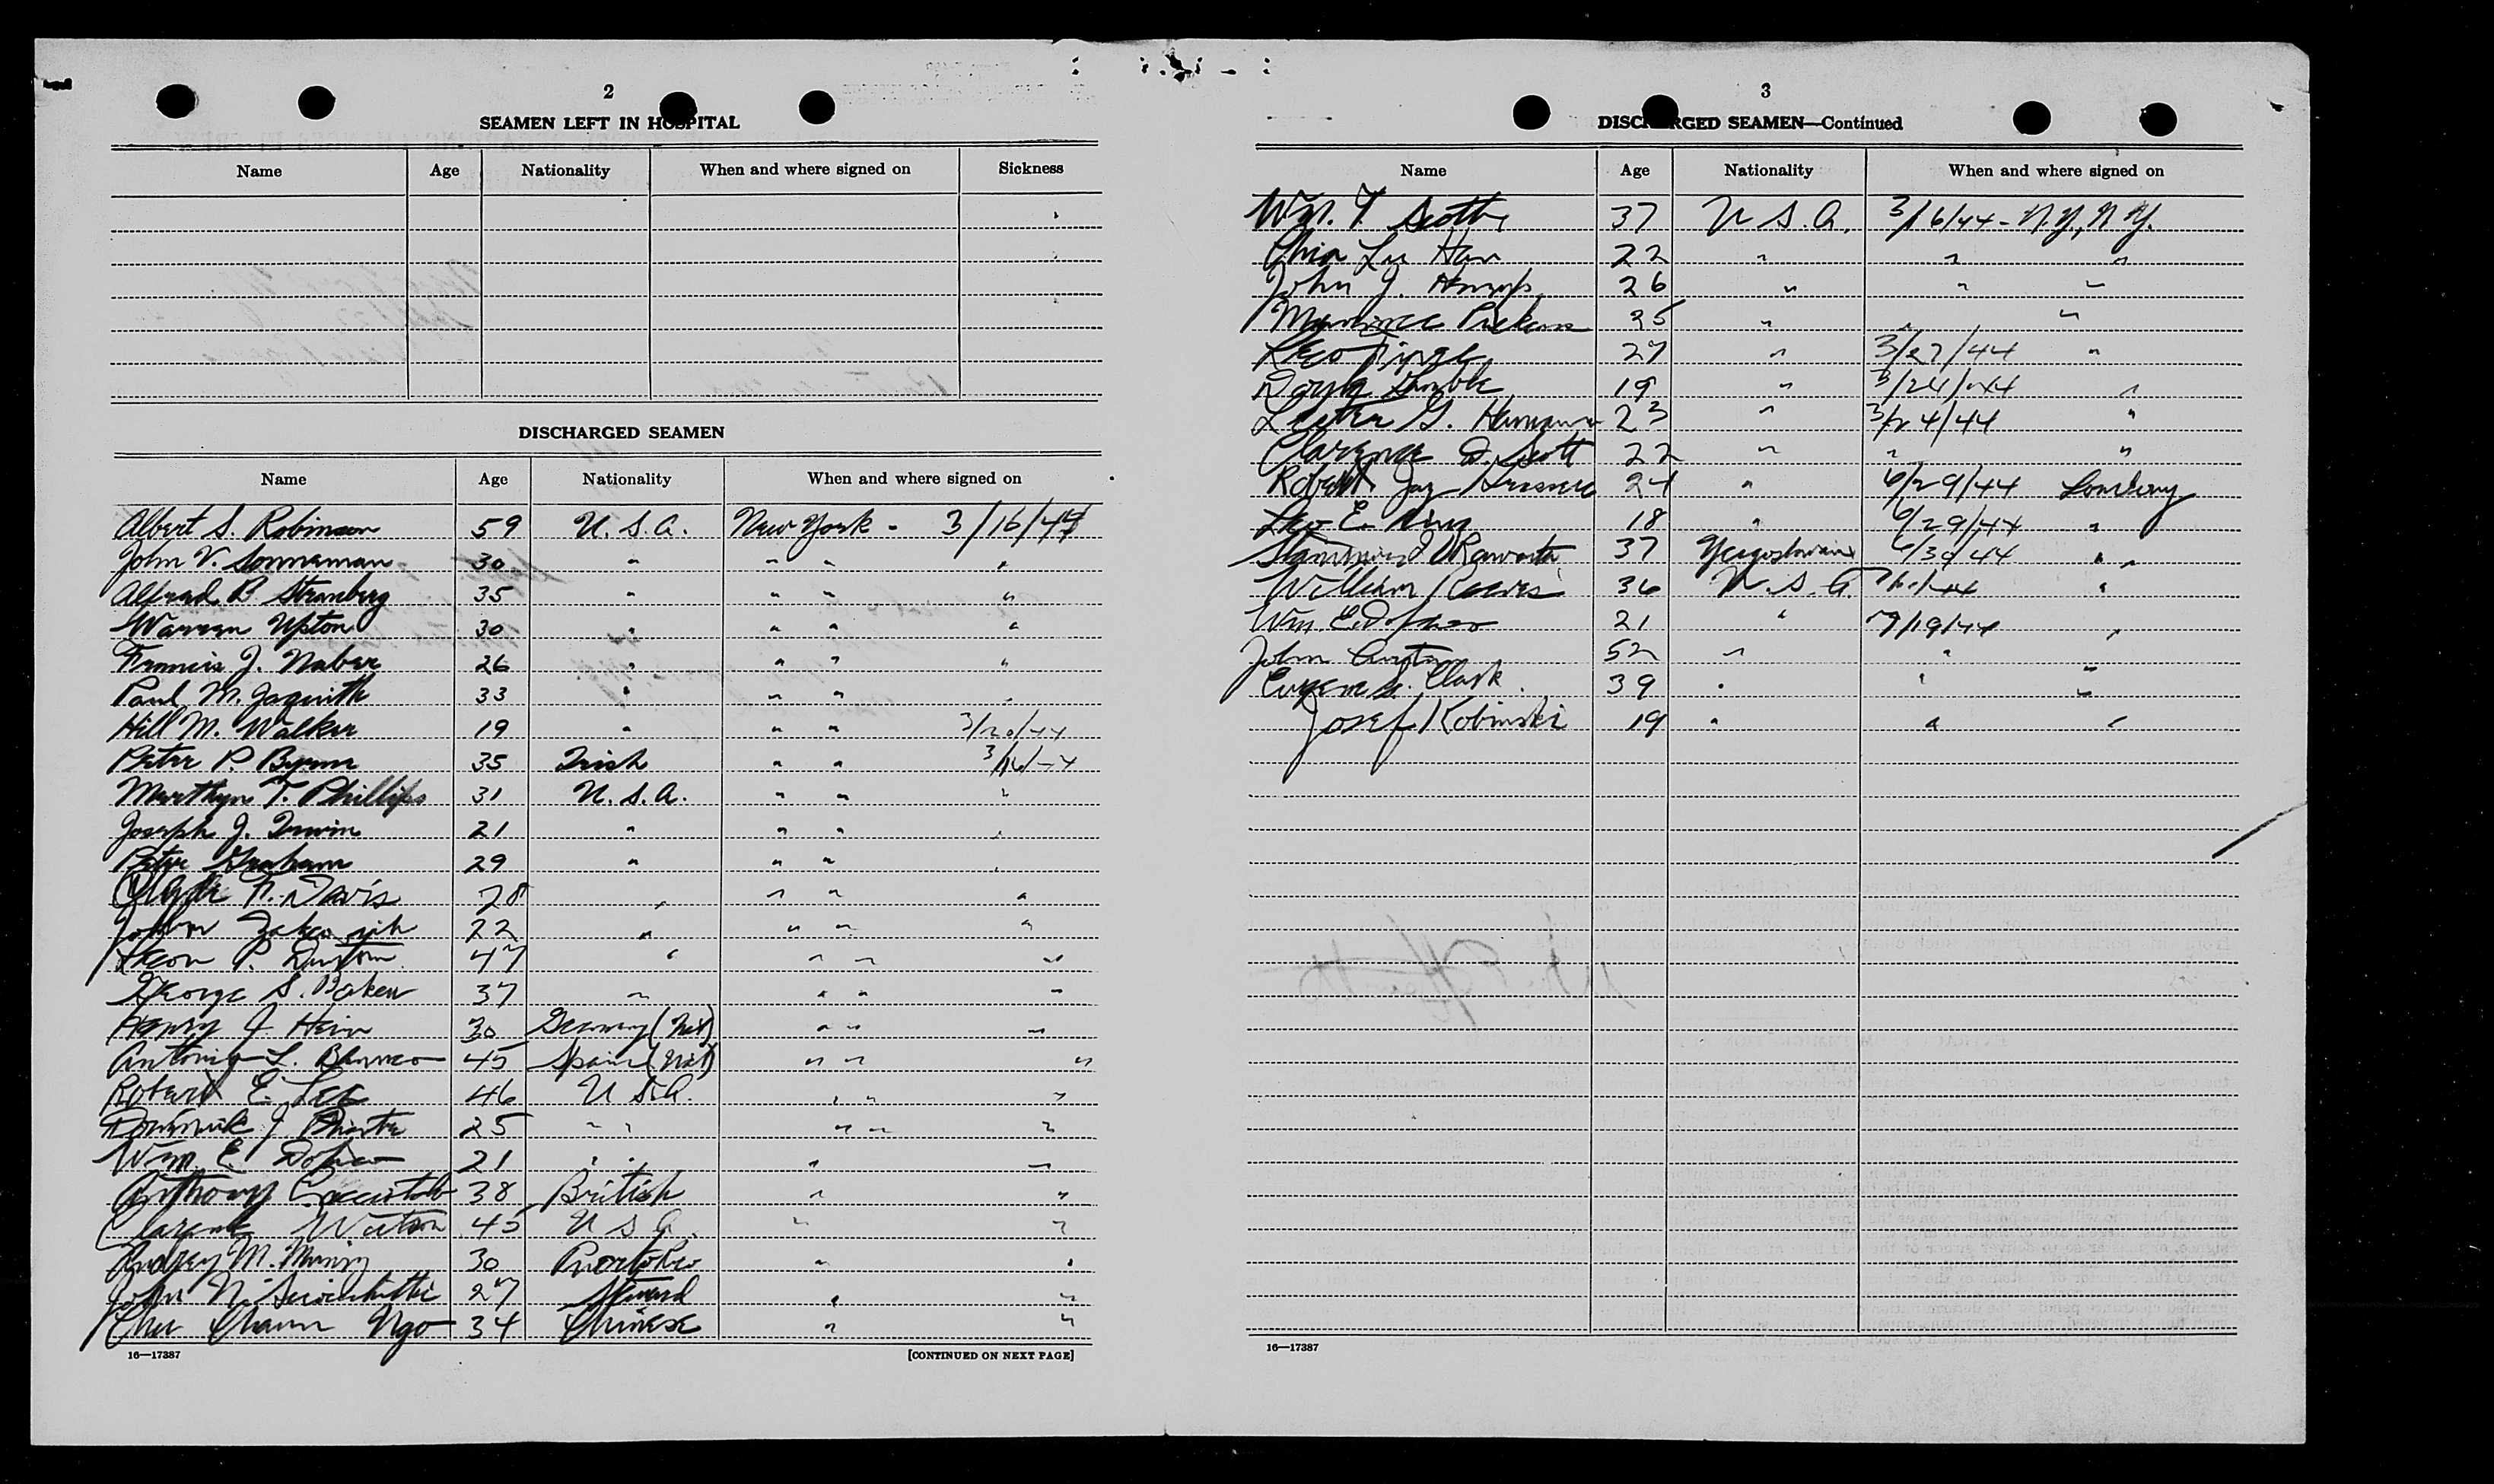 2
SEAMEN LEFT IN HOSPITAL
Name Age Nationality When and where signed on Sickness
DISCHARGED SEAMEN
Name Age Nationality When and where signed on
Albert S. Robinson 59 U.S.A. New York - 3/16/44
John V. Sonneman 30 " " " "
Alfred B. Stromberg 35 " " " "
Warren Upton 30 " " " "
Francis J. Naber 26 " " " "
Paul M. Jaquith 33 " " " "
Hill M. Walker 19 " " " 3/20/44
Peter P. Byrne 35 Irish " " 3/16/44
Marthyn T. Phillips 31 U.S.A. " " "
Joseph J. Irwin 21 " " " "
Peter Graham 29 " " " "
Clyde N. Davis 28 " " " "
John 22 " " " "
Leon P. Duston 47 " " " "
George S. Baken 37 " " " "
Henry J. Hein 30 Germany (Nat) " " "
Antonio L. 45 Spain (Nat) " " "
Robert E. Lee 46 U.S.A. " " "
Dominick J. 25 " " " " "
Wm. E. 21 " " " "
Anthony 38 British " "
Clarence Watson 45 U S A. " "
M. 30 Puerto Rico " "
John N. 27 " "
Chaun Ngo 34 Chinese " "
16—17387 [CONTINUED ON NEXT PAGE]
3
DISCHARGED SEAMEN—Continued
Name Age Nationality When and where signed on
Wm. T. Scott 37 U S.A. 3/16/44 - N.Y., N.Y.
Chin Lee Han 22 " " "
John J. 26 " " "
Pickens 25 " " "
Leo 27 " 3/27/44 "
19 " 3/24/44 "
Lester G. 23 " 3/24/44 "
Clarence D. Scott 22 " " "
Robert Jay 24 " 6/29/44
Leo E. King 18 " 6/29/44 "
37 6/30/44 " "
William Reeves 36 U.S.A. "
Wm E. 21 " 7/19/44 "
John 52 " " "
Eugene S. Clark 39 " " "
Josef Kobinski 19 " " "
16—17387